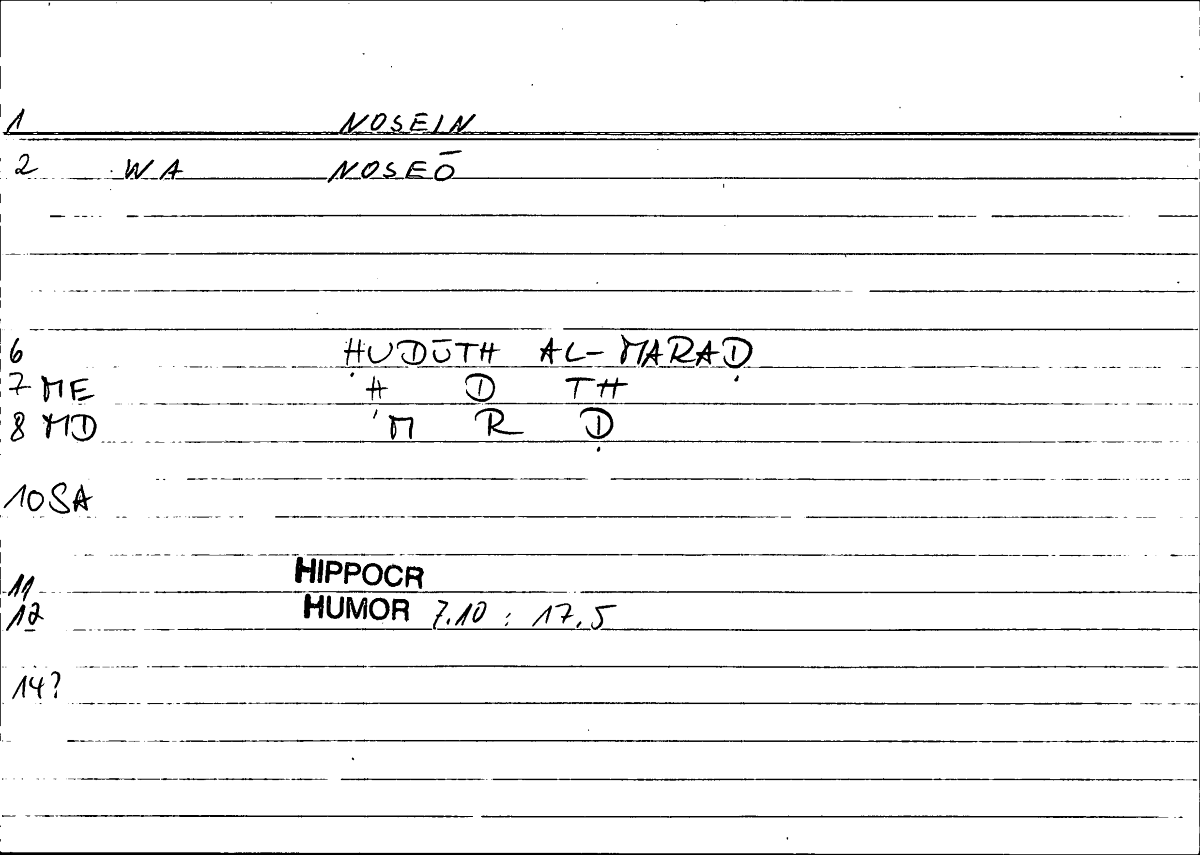 1 NOSEIN
2 WA NOSEŌ
6 ḤUDŪTH AL-MARAḌ
7 ME Ḥ D TH
8 MD M R Ḍ
10 SA
11 HIPPOCR
12 HUMOR 7.10 : 17.5
14?